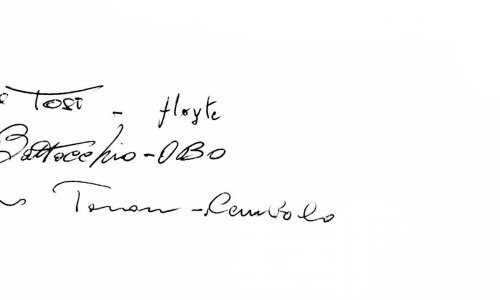 Tosi - floyte
Battocchio - OBO
Tonon - Cembalo